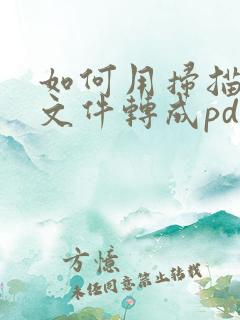 如何用掃描
文件轉成pd
方憶
未经同意禁止转载